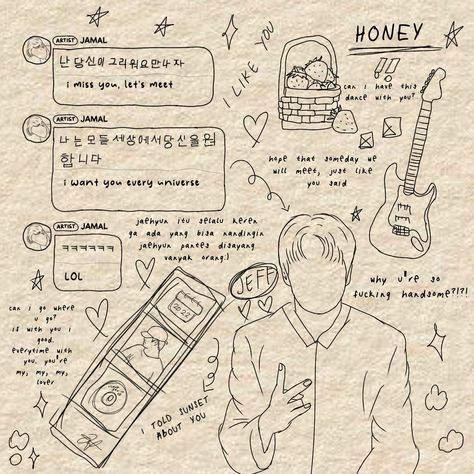 ARTIST JAMAL
난 당신이 그리워요 만나자
i miss you, let's meet
ARTIST JAMAL
나는 모든 세상에서 당신을 원
합니다
i want you every universe
ARTIST JAMAL
ㅋㅋㅋㅋㅋㅋ
LOL
I LIKE YOU
HONEY
can i have this
dance with you?
hope that someday we
will meet, just like
you said
jaehyun itu selalu keren
ga ada yang bisa nandingin
jaehyun pantes disayang
vanyak orang:)
JEFF
why u're so
fucking handsome?!?!
can i go where
u go?
is with you i
good.
everytime with
you. you're
my, my, my,
lover
I TOLD SUNSET
ABOUT YOU